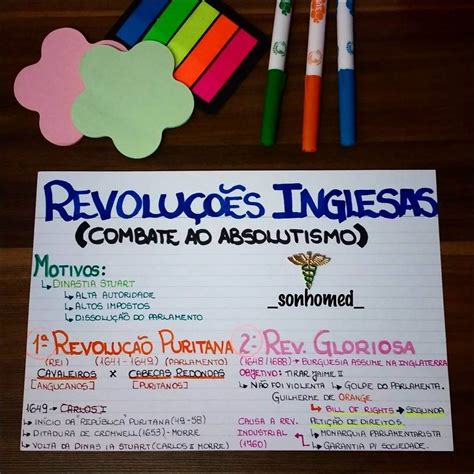 REVOLUÇOẼS INGLESAS
(COMBATE AO ABSOLUTISMO)
MOTIVOS:
↳ DINASTIA STUART
↳ ALTA AUTORIDADE
↳ ALTOS IMPOSTOS
↳ DISSOLUÇÃO DO PARLAMENTO
_sonhomed_
1ª REVOLUÇÃO PURITANA
(REI) (1641-1649) (PARLAMENTO)
CAVALEIROS X CABEÇAS REDONDAS
[ANGLICANOS] [PURITANOS]
1649 → CARLOS I
↳ INÍCIO DA REPÚBLICA PURITANA (49-58)
↳ DITADURA DE CROMWELL (1653) - MORRE
↳ VOLTA DA DINASTIA STUART (CARLOS II MORRE)
2ª REV. GLORIOSA
(1648/1688) → BURGUESIA ASSUME NA INGLATERRA
OBJETIVO: TIRAR JAIME II
↳ NÃO FOI VIOLENTA ↳ GOLPE DO PARLAMENTO.
GUILHERME DE ORANGE
↳ BILL OF RIGHTS → SEGUNDA
PETIÇÃO DE DIREITOS.
CAUSA A REV.
INDUSTRIAL
(1760)
↳ MONARQUIA PARLAMENTARISTA
↳ GARANTIA P/ SOCIEDADE.